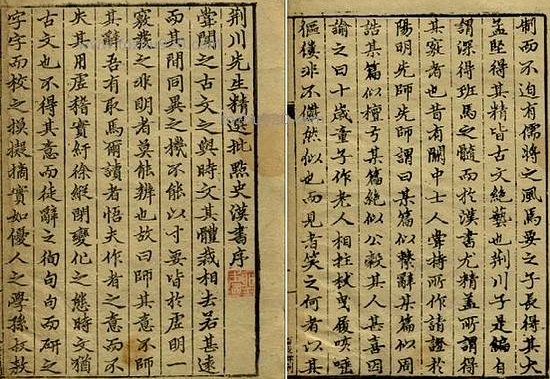 荊川先生精選批點史漢書序
嘗聞之古文之與時文其體裁相去若甚遠
而其間同異之機不能以寸要皆於虛明一
竅裁之非明者莫能辨也故曰師其意不師
其辭吾有取焉爾讀者悟夫作者之意而不
失其用虛稽實紆徐縱閉變化之態時文猶
古文也不得其意而徒辭之徇句句而研之
字字而校之摸擬摘實如優人之學孫叔敖
制而不迫有儒將之風焉要之子長得其大
孟堅得其精皆古文絕藝也荊川子是編自
謂深得班馬之髓而於漢書尤精蓋所謂得
其竅者也昔有關中士人嘗持所作請證於
陽明先師先師謂曰某篇似繫辭某篇似周
誥某篇似檀弓某篇絕似公穀其人甚喜因
諭之曰十歲童子作老人相拄杖曳履咳唾
傴僂非不儼然似也而見者笑之何者以其